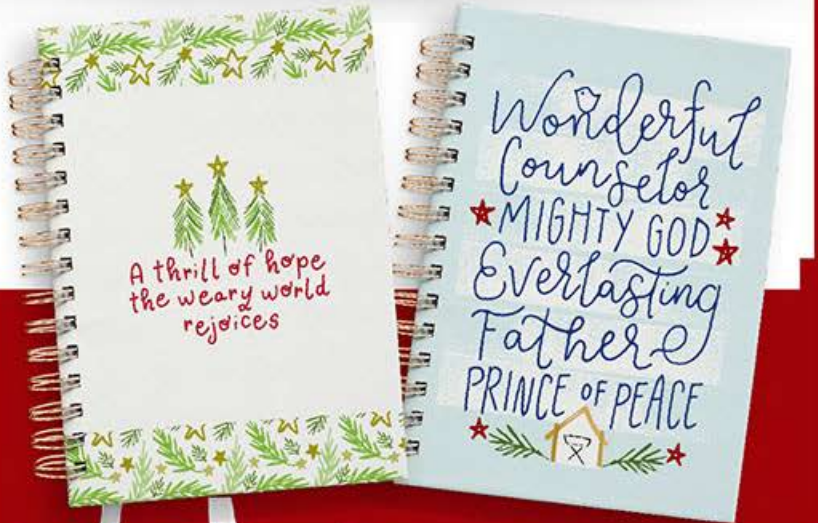 A thrill of hope
the weary world
rejoices
Wonderful
Counselor
MIGHTY GOD
Everlasting
Father
PRINCE OF PEACE